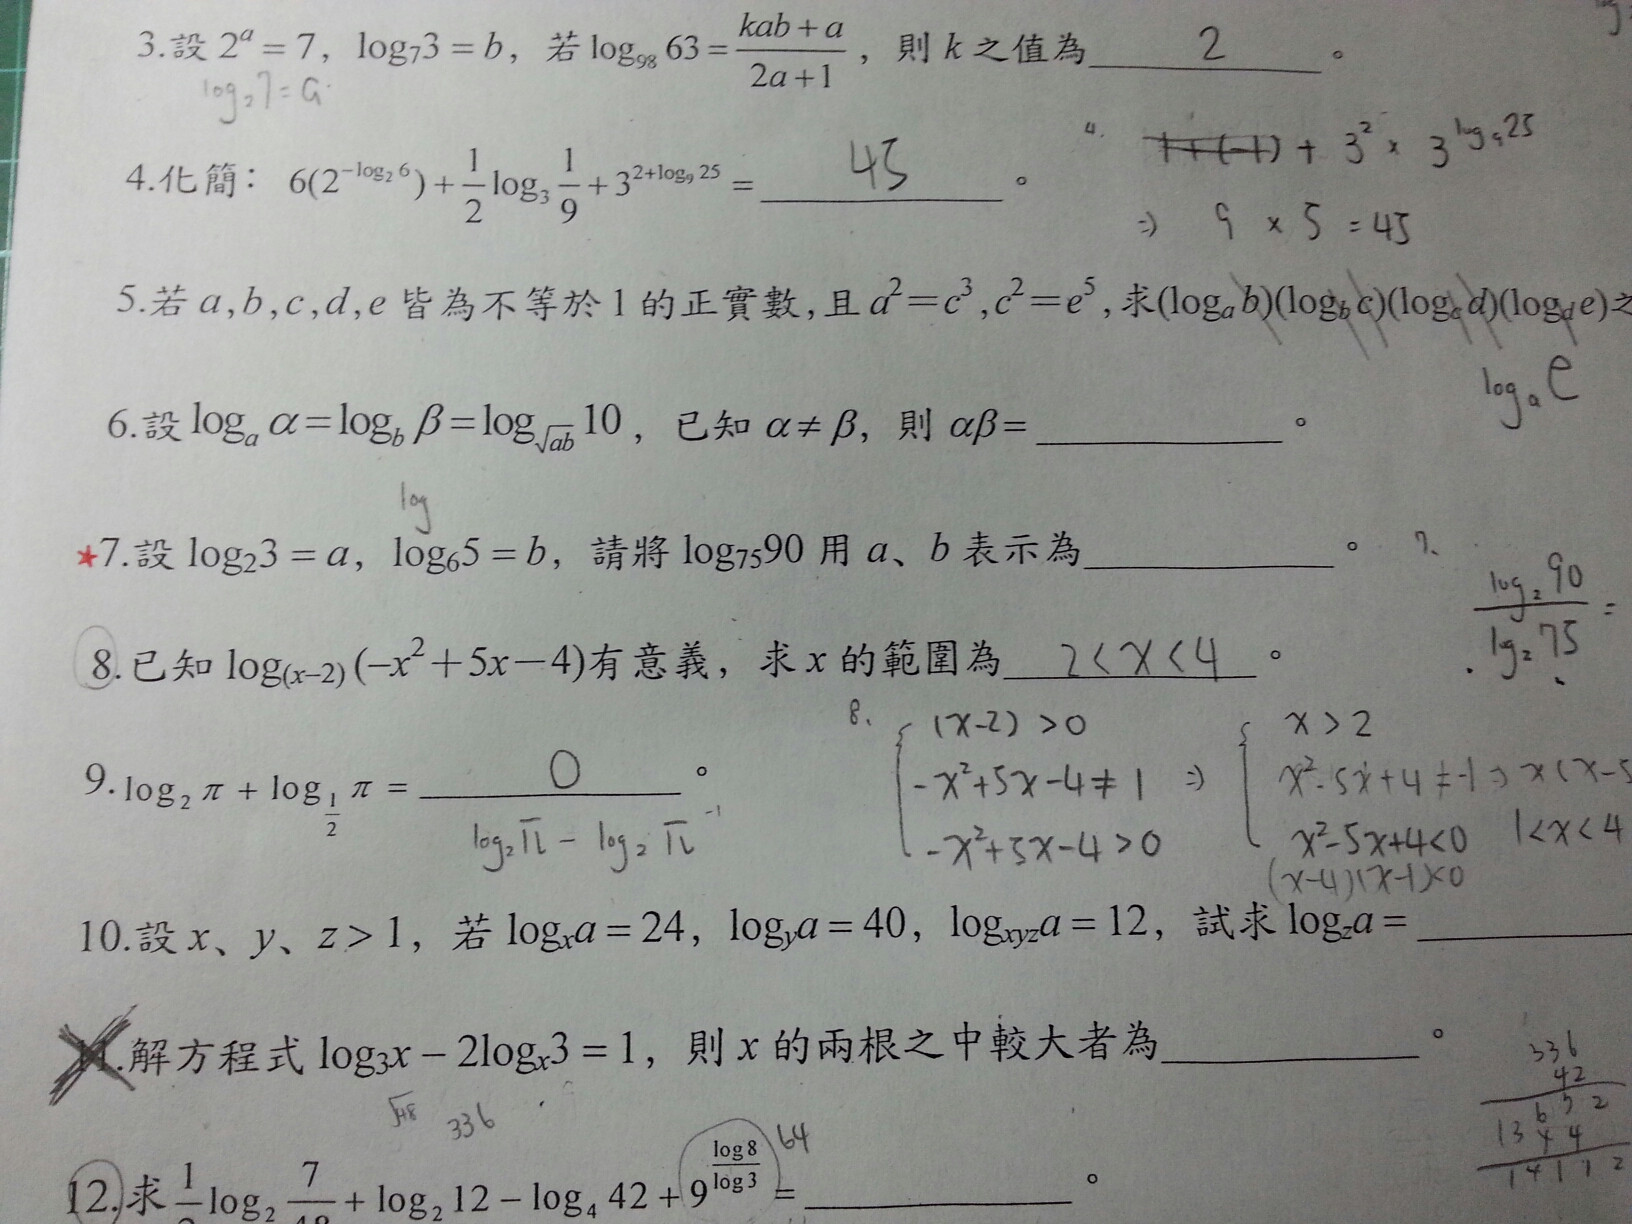 3.設 2^a = 7，log_7 3 = b，若 log_98 63 = (kab + a)/(2a + 1)，則 k 之值為 2 。
log_2 7 = a
4.化簡：6(2^(-log_2 6)) + 1/2 log_3 1/9 + 3^(2+log_9 25) = 45 。
4. 1+(-1) + 3^2 × 3^(log_9 25)
⇒ 9 × 5 = 45
5.若 a,b,c,d,e 皆為不等於1的正實數,且 a^2=c^3,c^2=e^5,求(log_a b)(log_b c)(log_c d)(log_d e)之
log_a e
6.設 log_a α = log_b β = log_√ab 10，已知 α ≠ β，則 αβ = 。
log
★7.設 log_2 3 = a，log_6 5 = b，請將 log_75 90 用 a、b 表示為 。
7. log_2 90 / log_2 75 =
8.已知 log_(x−2) (−x^2+5x−4)有意義，求 x 的範圍為 2<x<4 。
8. (x-2) >0 ⇒ x>2
-x^2+5x-4≠1 x^2-5x+4≠-1 ⇒ x(x-5
-x^2+5x-4>0 x^2-5x+4<0 1<x<4
(x-4)(x-1)<0
9. log_2 π + log_(1/2) π = 0 。
log_2 π - log_2 π^-1
10.設 x、y、z > 1，若 log_x a = 24，log_y a = 40，log_xyz a = 12，試求 log_z a =
11.解方程式 log_3 x − 2log_x 3 = 1，則 x 的兩根之中較大者為 。
√48 336
336
42
672
1344
14112
64
12.求 1/2 log_2 7/48 + log_2 12 − log_4 42 + 9^(log8/log3) = 。